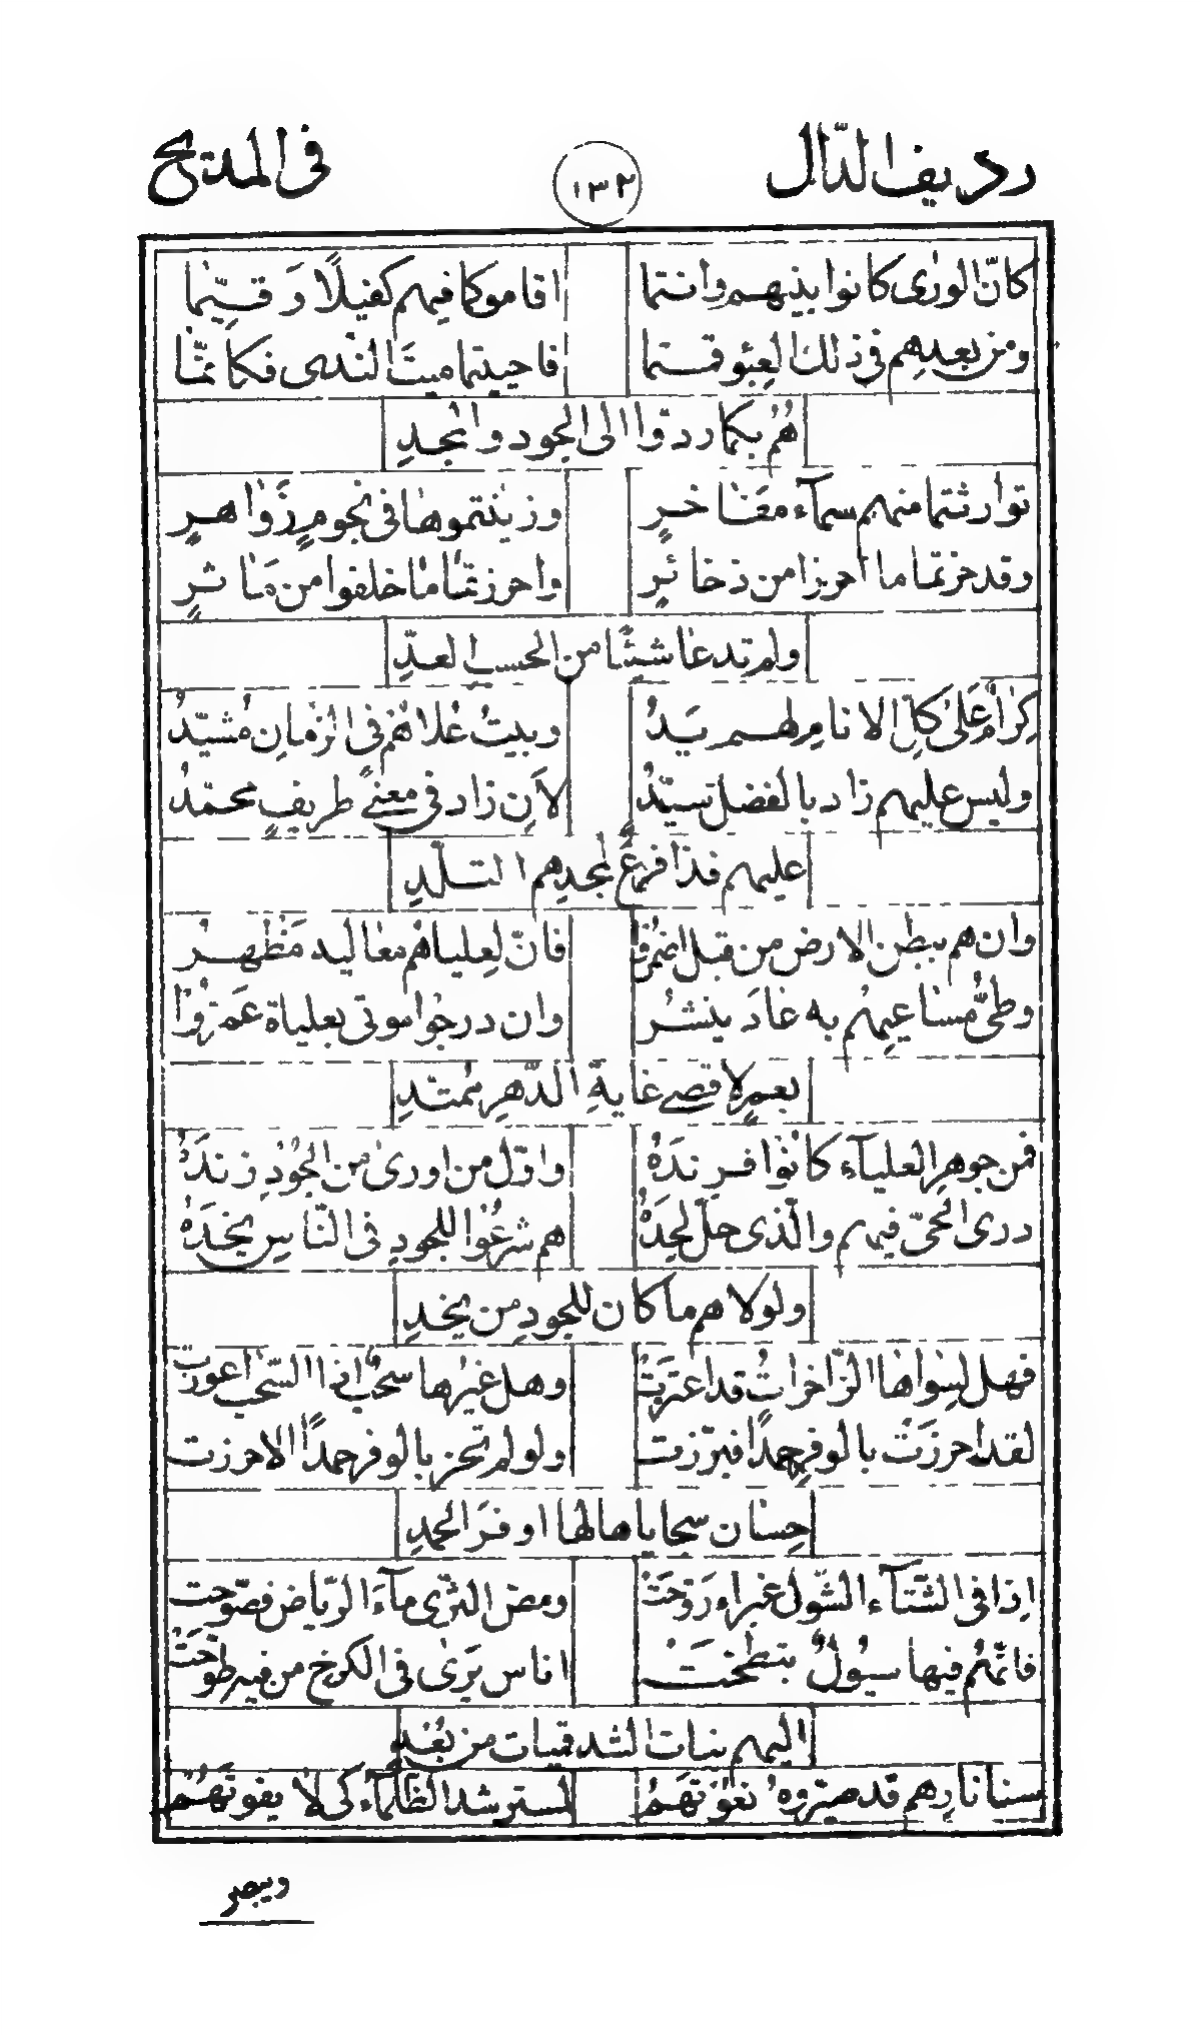 رديف الدّال ١٣٢ فى المديح
كانّ الورٰى كانوا بنيهم وانتما اقاموكما فيهم كفيلًا وَقيّما
ومن بعدِهم فى ذلك العِبْو قمتما فاحييتما ميتَ الندى فكانّما
هُمُ بكما ردّوا الى الجود والمجدِ
توارثتما منهم سماۤء مفاخرٍ وزينتموها فى نجومٍ زَواهرٍ
وقد حزتما ما احرزا من ذخائرٍ واحرزتما ما خلفوا من مَاثرٍ
ولم تدعا شيئًا من الحسب العدِّ
كِرامٌ عَلىٰ كلِّ الانامِ لهم يَدُ وبيتُ عُلاهُم فى الزمانِ مُشيّدُ
وليس عليهم زاد بالفضل سيّدُ لاَِن زاد فى معنىً طريفٍ محمّدُ
عليهم فذا فرعٌ لمجدِهم التلدِ
وان هم ببطن الارض من قبل اضمروا فانّ لِعلياهُم معاليه مَظهرُ
وطىُّ مساعيهُم به عادَ ينشرُ وان درجوا موتى بعلياه عَمَّروا
بعمرٍ لاقصى غايةِ الدّهرِ ممتدِّ
فمن جوهرِ العلياۤء كانوا فرندَهُ واوّل من اورىٰ من الجُودِ زندَهُ
درى الحىّ فيهم والّذى حلّ لحدَهُ هم شرعُوا للجودِ فى النّاسِ نجدَهُ
ولولاهم ما كان للجودِ من نجدِ
فهل لِسِواها الزّاخراتُ قد اعتزتْ وهل غيرُها سحُبٌ اذا السّحب اعوزت
لقد احرزَتْ بالوفرِ حمدًا فبرّزت ولو لم تحز بالوفر حمدًا لاحرزت
حِسانُ سجاياها لها اوفرَ الحمدِ
اِذا فى الشّتاۤء الشّول غبراء رَوّحَتْ ومصّ الثرّى ماۤءَ الرّياض فصوّحت
فانّهُم فيها سيُولٌ تبطّحَتْ اناس يَرىٰ فى الكرخ من فيهِ طوّحَتْ
اليهم بنات الشدقميات من بُعْدِ
سنا نارِهم قد صيّروهُ نعوتَهُمُ لتسترشد الظلماۤءُ كى لا يفوتَهُمُ
ويبصر